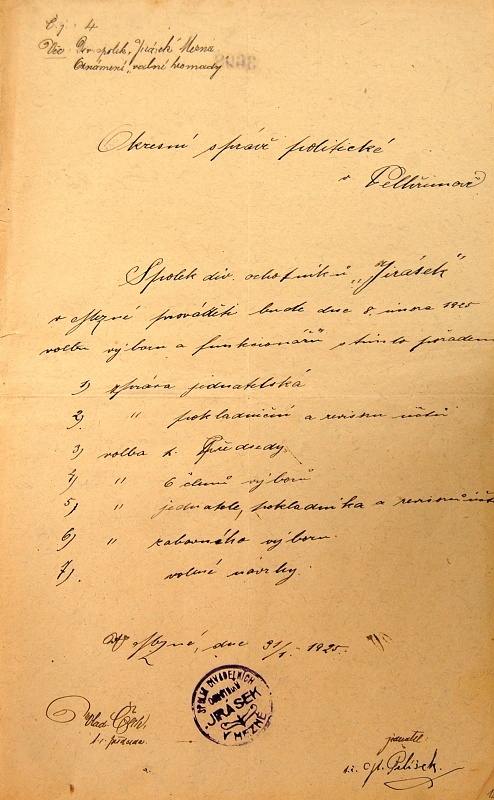 Č.j. 4
Věc Div. spolek „Jirásek" Mezná
Oznámení valné hromady
Okresní správě politické
v Pelhřimově
Spolek div. ochotníků „Jirásek"
v Mezné prováděti bude dne 8. února 1925
volbu výboru a funkcionářů s tímto pořadem
1) zpráva jednatelská
2) " pokladniční a revisorů účtů
3) volba předsedy
4) " 6 členů výborů
5) " jednatele, pokladníka a revisorů
6) " zábavného výboru.
7) volné návrhy.
V Mezné, dne 31/1. 1925.
SPOLEK DIVADELNÍCH
OCHOTNÍKŮ
JIRÁSEK
V MEZNÉ
Vlad.
t. č. předseda
jednatel
t. č.